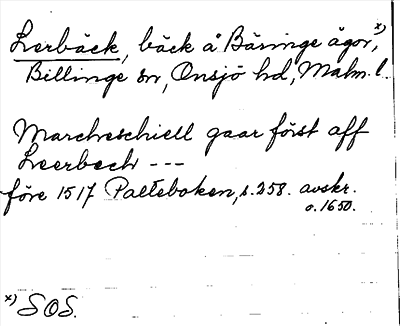 Lerbäck, bäck å Bäringe ägor, x)
Billinge sn, Onsjö hd, Malm. l.
Marcheschiell gaar först aff
Leerbech ---
före 1517 Palteboken, s. 258. avskr.
o. 1650.
x) SOS.